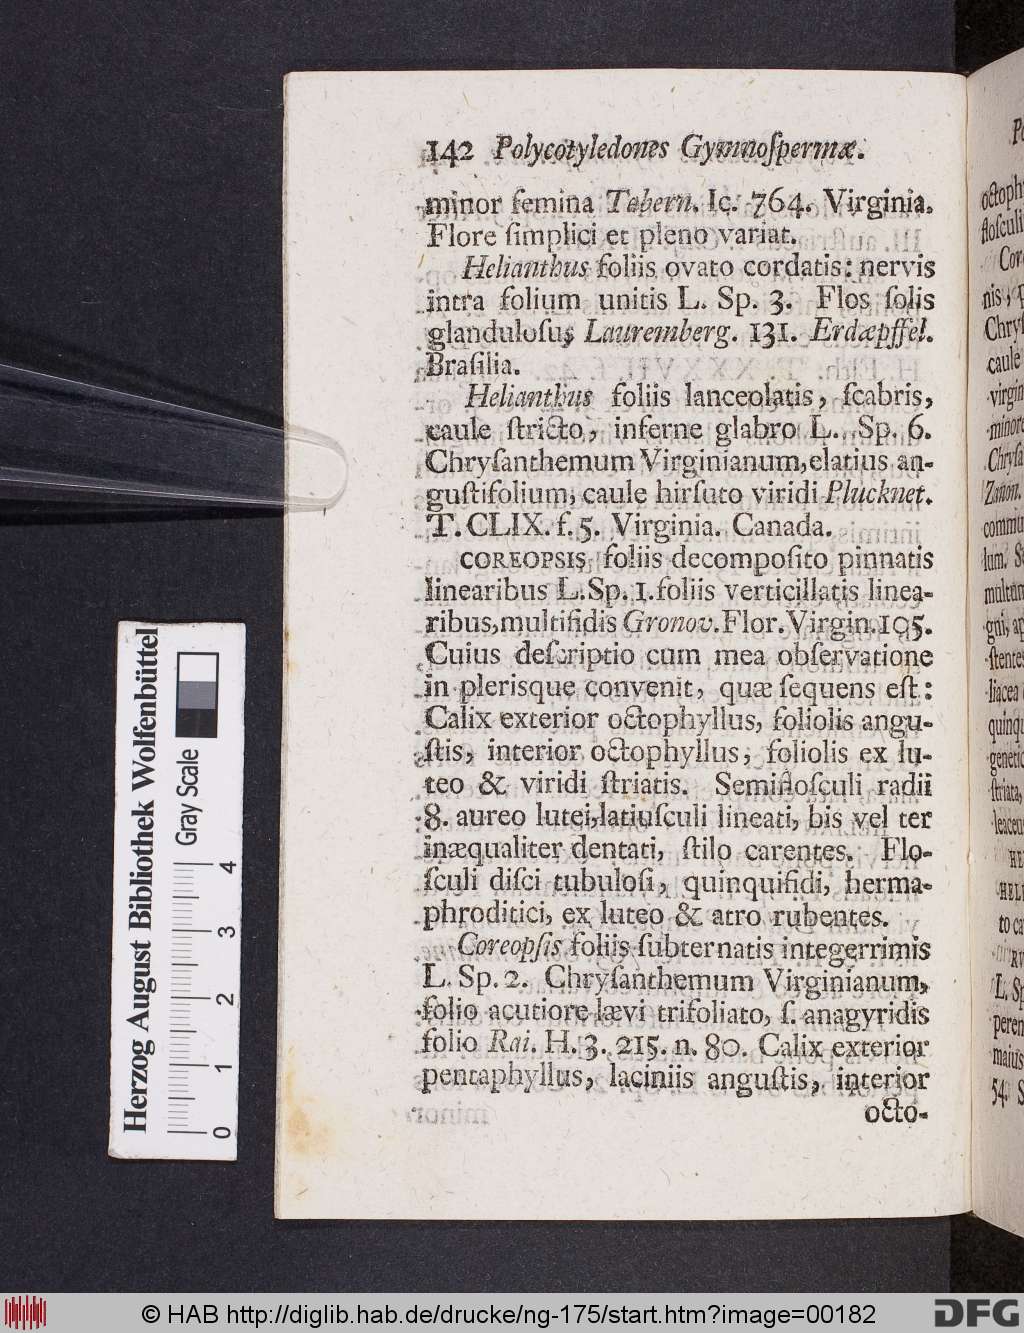 142 Polycotyledones Gymnoſpermæ.
minor femina Tabern. Ic. 764. Virginia.
Flore ſimplici et pleno variat.
Helianthus foliis ovato cordatis: nervis
intra folium unitis L. Sp. 3. Flos ſolis
glanduloſus Lauremberg. 131. Erdæpffel.
Braſilia.
Helianthus foliis lanceolatis, ſcabris,
caule ſtricto, inferne glabro L. Sp. 6.
Chryſanthemum Virginianum, elatius an-
guſtifolium, caule hirſuto viridi Plucknet.
T. CLIX. f. 5. Virginia. Canada.
COREOPSIS foliis decompoſito pinnatis
linearibus L. Sp. 1. foliis verticillatis linea-
ribus, multifidis Gronov. Flor. Virgin. 195.
Cuius deſcriptio cum mea obſervatione
in plerisque convenit, quæ ſequens eſt:
Calix exterior octophyllus, foliolis angu-
ſtis, interior octophyllus, foliolis ex lu-
teo & viridi ſtriatis. Semifloſculi radii
8. aureo lutei, latiuſculi lineati, bis vel ter
inæqualiter dentati, ſtilo carentes. Flo-
ſculi diſci tubuloſi, quinquifidi, herma-
phroditici, ex luteo & atro rubentes.
Coreopſis foliis ſubternatis integerrimis
L. Sp. 2. Chryſanthemum Virginianum,
folio acutiore lævi trifoliato, ſ. anagyridis
folio Rai. H. 3. 215. n. 80. Calix exterior
pentaphyllus, laciniis anguſtis, interior
octo-
Herzog August Bibliothek Wolfenbüttel
Gray Scale
0 1 2 3 4
© HAB http://diglib.hab.de/drucke/ng-175/start.htm?image=00182
DFG